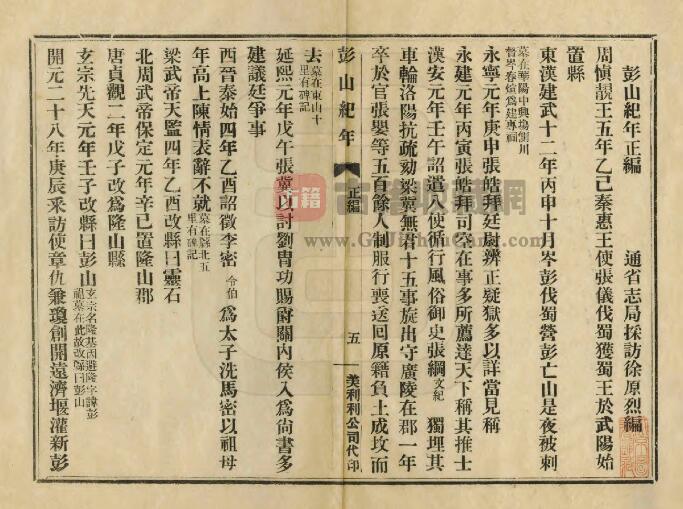 彭山紀年正編　　　通省志局採訪徐原烈編
周愼靚王五年乙巳秦惠王使張儀伐蜀獲蜀王於武陽始
置縣
東漢建武十二年丙申十月岑彭伐蜀營彭亡山是夜被刺
墓在華陽中興場側川
督岑春煊爲建專祠
永寧元年庚申張皓拜廷尉辨正疑獄多以詳當見稱
永建元年丙寅張皓拜司空在事多所薦達天下稱其推士
漢安元年壬午詔遣八使循行風俗御史張綱文紀獨埋其
車輪洛陽抗疏劾梁冀無君十五事旋出守廣陵在郡一年
卒於官張嬰等五百餘人制服行喪送回原籍負土成坟而
去墓在東山十
里有碑記
彭山紀年
正編
五
美利利公司代印
延熙元年戊午張翼以討劉冑功賜爵關內侯入爲尚書多
建議廷爭事
西晉泰始四年乙酉詔徵李密令伯爲太子洗馬密以祖母
年高上陳情表辭不就墓在縣北五
里有碑記
梁武帝天監四年乙酉改縣曰靈石
北周武帝保定元年辛巳置隆山郡
唐貞觀二年戊子改爲隆山縣
玄宗先天元年壬子改縣曰彭山玄宗名隆基因避隆字諱彭
祖墓在此故改縣曰彭山
開元二十八年庚辰采訪使章仇兼瓊創開遠濟堰灌新彭
古籍
www.GujiShuCang.com